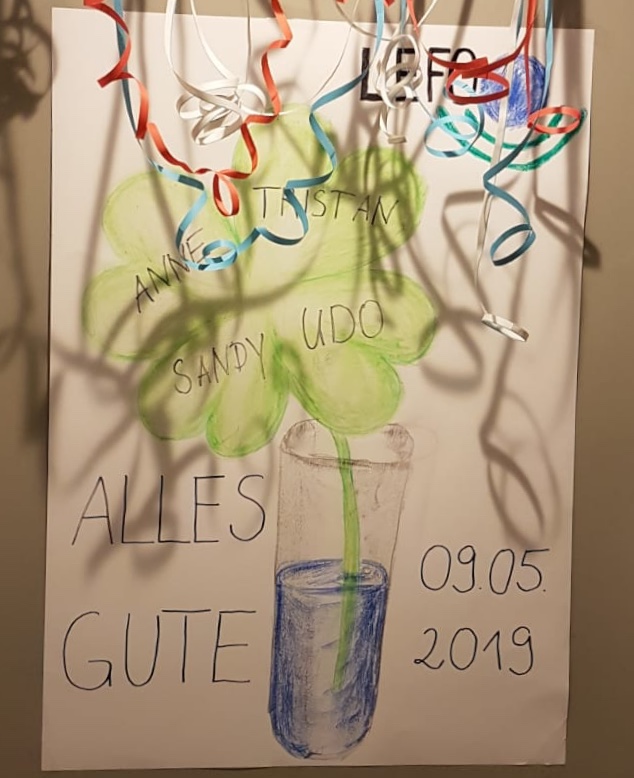 TRISTAN
ANNE
UDO
SANDY
ALLES
GUTE
09.05.
2019